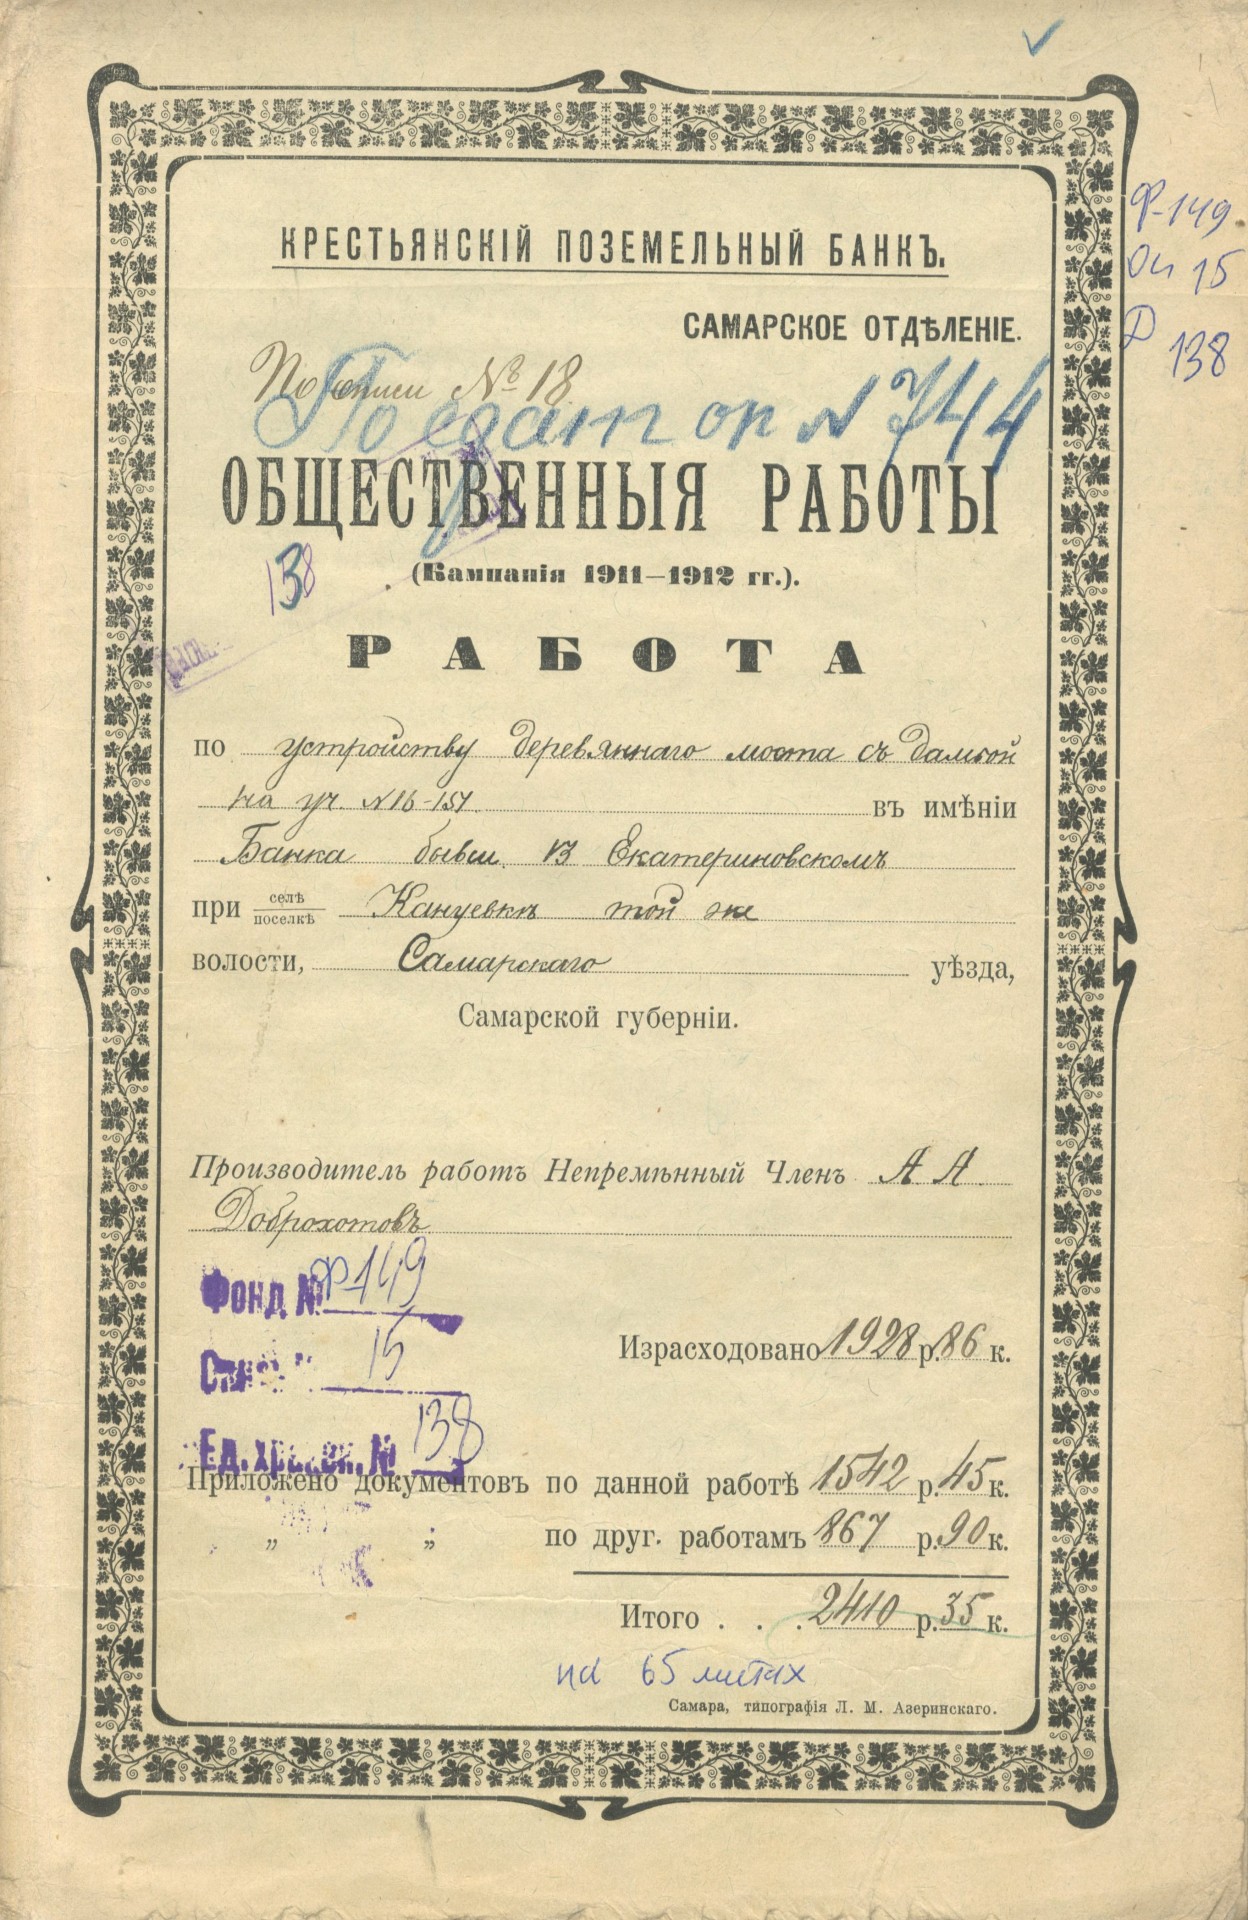 Ф-149
Оп 15
Д 138
КРЕСТЬЯНСКІЙ ПОЗЕМЕЛЬНЫЙ БАНКЪ.
САМАРСКОЕ ОТДѢЛЕНІЕ.
По описи № 18
По оп N 744
ОБЩЕСТВЕННЫЯ РАБОТЫ
138
(Кампанія 1911—1912 гг.).
РАБОТА
по устройству деревяннаго моста съ дамбой
на уч. N 16-151 въ имѣніи
Банка бывш. Екатериновскомъ
при селѣ/поселкѣ Кануевкѣ той же
волости, Самарскаго уѣзда,
Самарской губерніи.
Производитель работъ Непремѣнный Членъ А А
Доброхотовъ
Фонд № Ф-149
15
Израсходовано 1928 р. 86 к.
Ед. хранен. № 138
Приложено документовъ по данной работѣ 1542 р. 45 к.
„ „ по друг. работамъ 867 р. 90 к.
Итого . . . 2410 р. 35 к.
на 65 листах
Самара, типографія Л. М. Азеринскаго.